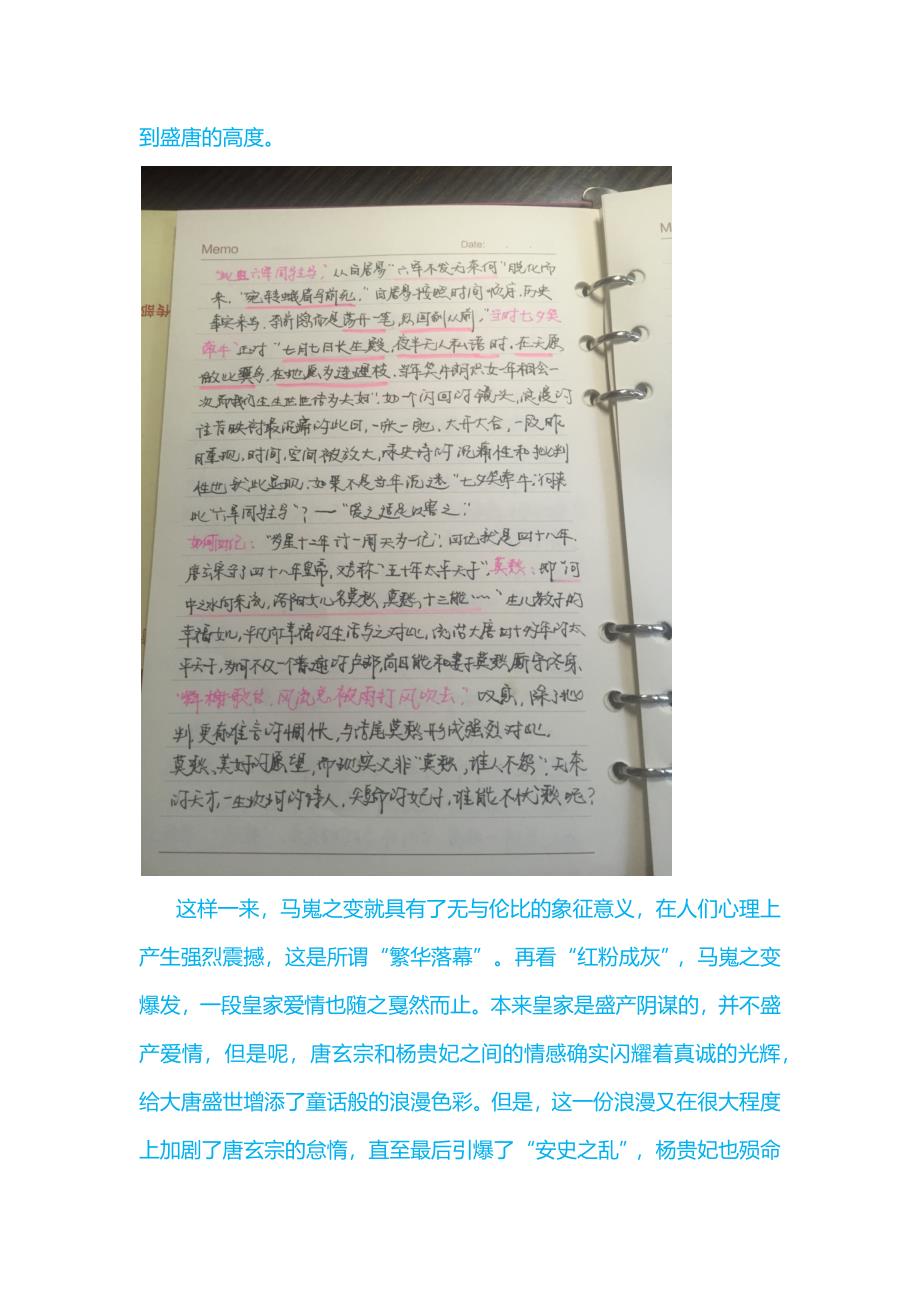 到盛唐的高度。
Memo
Date:
M
传部
“此日六军同驻马”，从白居易“六军不发无奈何”脱化而
来，“宛转蛾眉马前死。”白居易按照时间顺序，历史
事实来写，李商隐而是荡开一笔，又回到从前，“当时七夕笑
牵牛”正对“七月七日长生殿，夜半无人私语时，在天愿
做比翼鸟，在地愿为连理枝，当年笑牛郎织女一年相会一
次而我们生生世世结为夫妇”，如一个闪回的镜头，浪漫的
往昔映衬最沉痛的此日，一张一弛，大开大合，一段昨
日重现，时间，空间被放大，咏史诗的沉痛性和批判
性也就此显现，如果不是当年沉迷“七夕笑牵牛”，何来
此“六军同驻马”？—“爱之适足以害之”。
如何四纪：“岁星十二年讨一周天为一纪”，四纪就是四十八年，
唐玄宗当了四十八年皇帝，戏称“五十年太平天子”，莫愁：即“河
中之水向东流，洛阳女儿名莫愁，莫愁，十三能……”生儿教子的
幸福女儿，平凡而幸福的生活与之对比，
平天子，为何不及一个普通的卢郎，尚且能和妻子莫愁厮守终身，
“舞榭歌台，风流总被雨打风吹去”，叹息，除了批
判，更有难言的惆怅，与结尾莫愁形成强烈对比。
莫愁、美好的愿望，而现实又非“莫愁，谁人不怨”，无奈
的天才，一生坎坷的诗人，短命的妃子，谁能不忧愁呢？
这样一来，马嵬之变就具有了无与伦比的象征意义，在人们心理上
产生强烈震撼，这是所谓“繁华落幕”。再看“红粉成灰”，马嵬之变
爆发，一段皇家爱情也随之戛然而止。本来皇家是盛产阴谋的，并不盛
产爱情，但是呢，唐玄宗和杨贵妃之间的情感确实闪耀着真诚的光辉，
给大唐盛世增添了童话般的浪漫色彩。但是，这一份浪漫又在很大程度
上加剧了唐玄宗的怠惰，直至最后引爆了“安史之乱”，杨贵妃也殒命